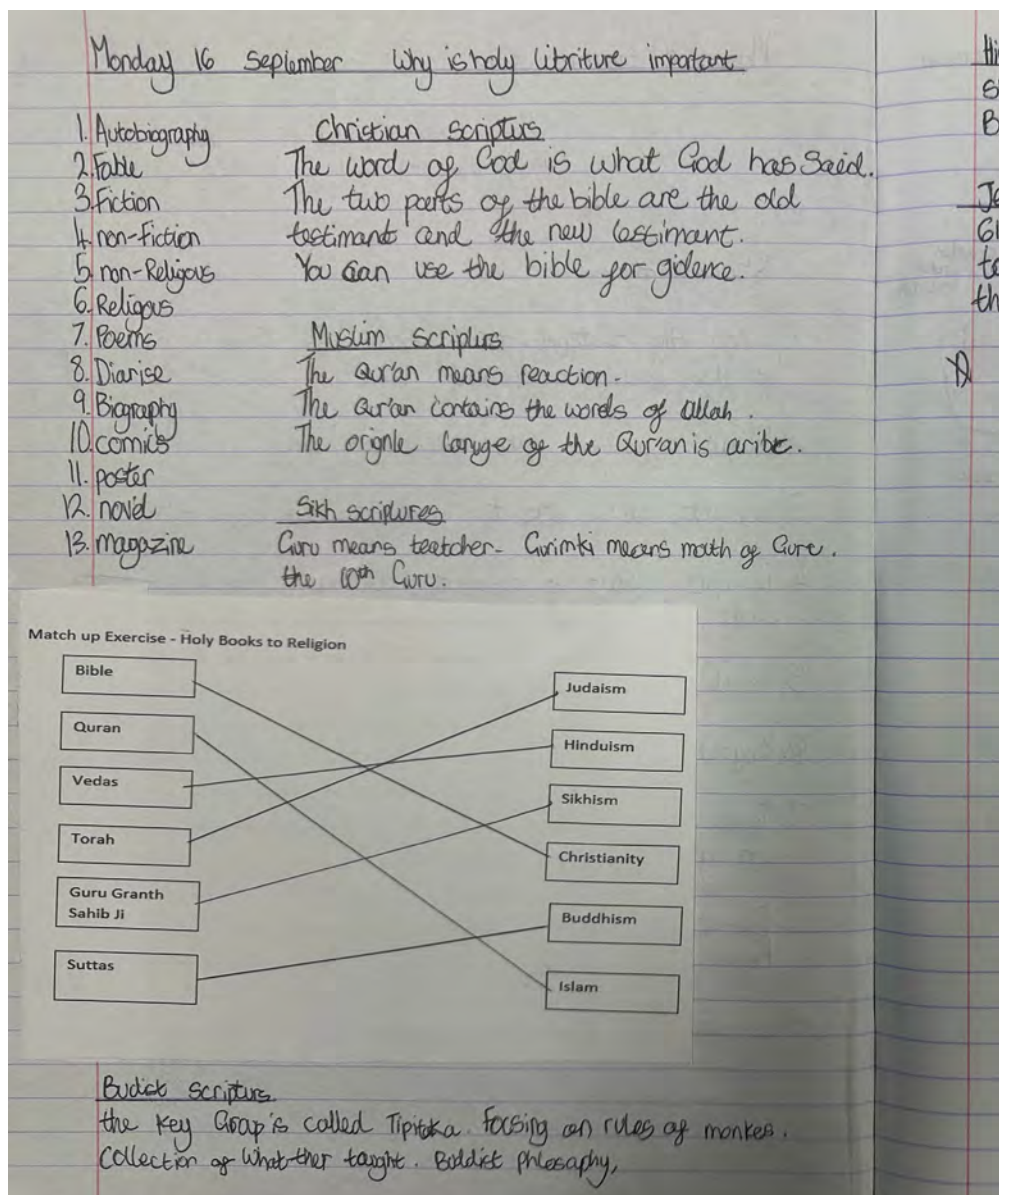 Monday 16 September Why is holy libriture important
1. Autobiography
2. Fable
3. Fiction
4. non-fiction
5. non-Religous
6. Religous
7. Poems
8. Diarise
9. Biography
10. comics
11. poster
12. novel
13. magazine
Christian scripturs
The word of God is what God has Saied.
The two parts of the bible are the old
testimant and the new testimant.
You can use the bible for gidence.
Muslim scripturs
The Qur'an means reaction.
The Qur'an contains the words of allah.
The orignle lanuge of the Qur'an is aribc.
Sikh scriptures
Guru means teatcher. Gurimki means mouth of Gure.
the 10th Guru.
Match up Exercise - Holy Books to Religion
Bible
Quran
Vedas
Torah
Guru Granth
Sahib Ji
Suttas
Judaism
Hinduism
Sikhism
Christianity
Buddhism
Islam
Budict scripturs
the key Group is called Tipitaka. Focsing on rules of monkes.
Collection of What ther taught. Buddict phlosaphy,